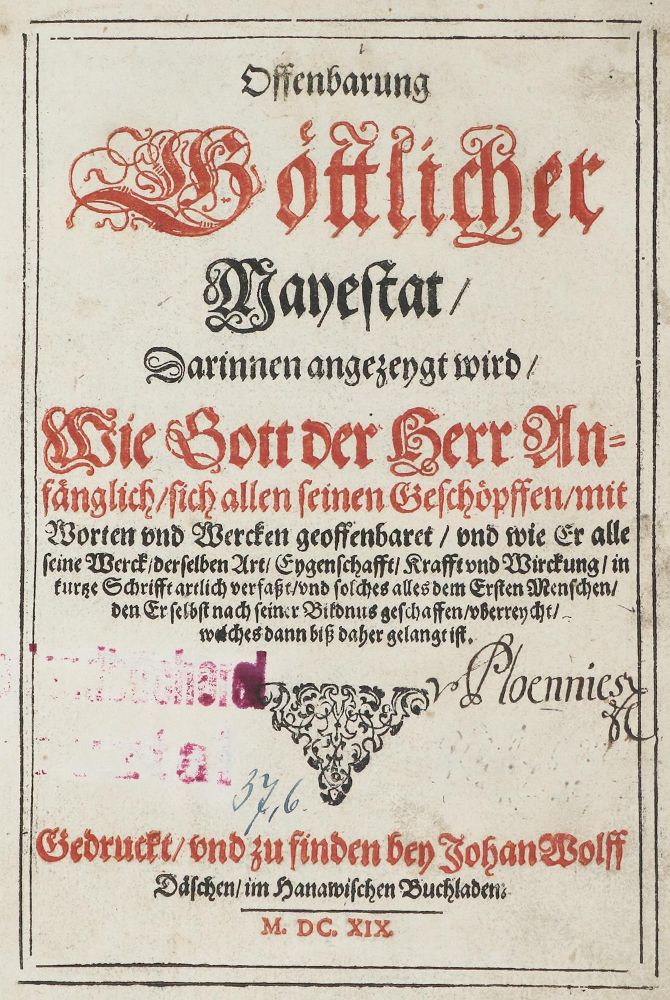 Offenbarung
Göttlicher
Mayestat/
Darinnen angezeygt wird/
Wie Gott der Herr An-
fänglich/sich allen seinen Geschöpffen/mit
Worten vnd Wercken geoffenbaret/vnd wie Er alle
seine Werck/derselben Art/Eygenschafft/Krafft vnd Wirckung/in
kurtze Schrifft artlich verfaßt/vnd solches alles dem Ersten Menschen/
den Er selbst nach seiner Bildnus geschaffen/vberreycht/
welches dann biß daher gelangt ist.
v Ploennies
37,6.
Gedruckt/vnd zu finden bey Johan Wolff
Däschen/im Hanawischen Buchladen.
M. DC. XIX.